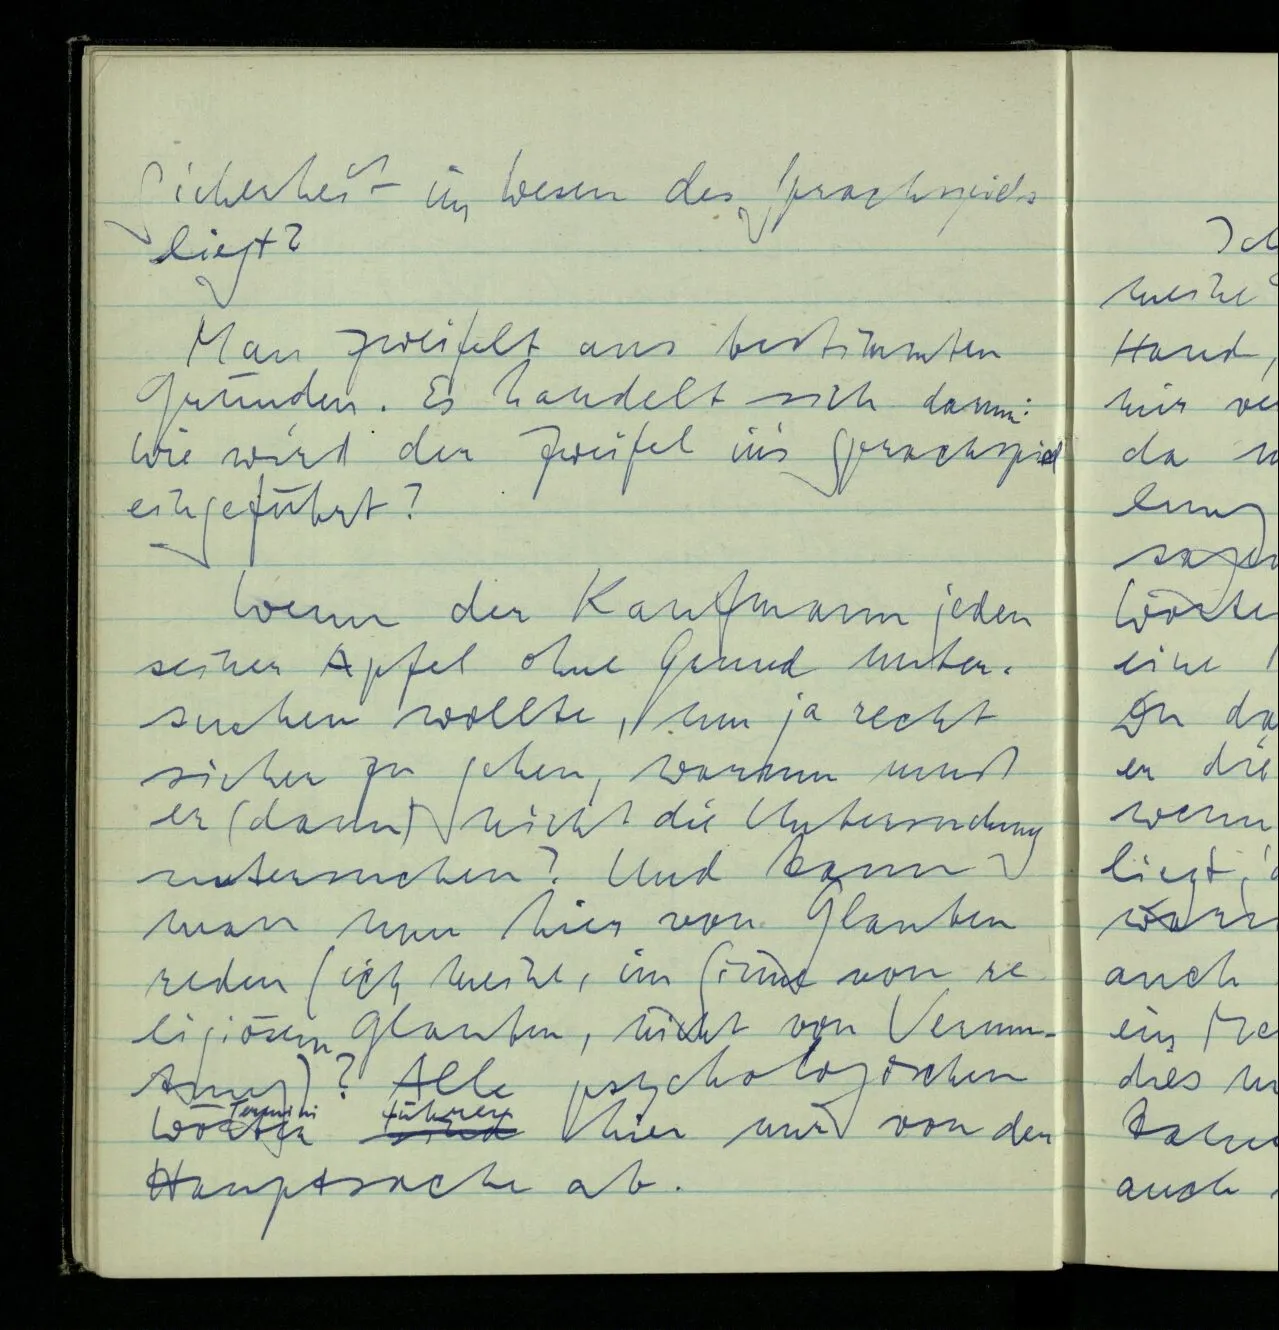 Sicherheit im Wesen des Sprachspiels
liegt?
Man zweifelt aus bestimmten
Gründen. Es handelt sich darum:
Wie wird der Zweifel in's Sprachspiel
eingeführt?
Wenn der Kaufmann jeden
seiner Äpfel ohne Grund unter-
suchen wollte, um ja recht
sicher zu gehen, warum muß
er (dann) nicht die Untersuchung
untersuchen? Und kann
man nun hier von Glauben
reden (ich meine, im Sinne von re
ligiösem Glauben, nicht von Vermu-
tung)? Alle psychologischen
Termini führen
Wörter hier nur von der
Hauptsache ab.
Ich
meine
Hand,
mir
da
eine
er
wenn
liegt,
auch
ein
dies
auch